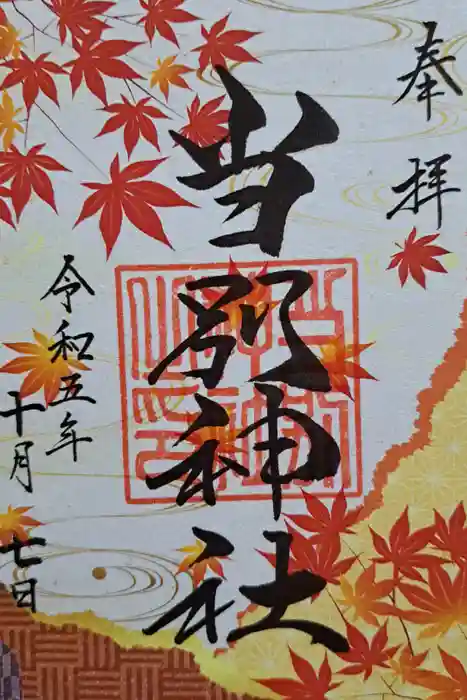 奉拝
当別神社
令和五年
十月七日